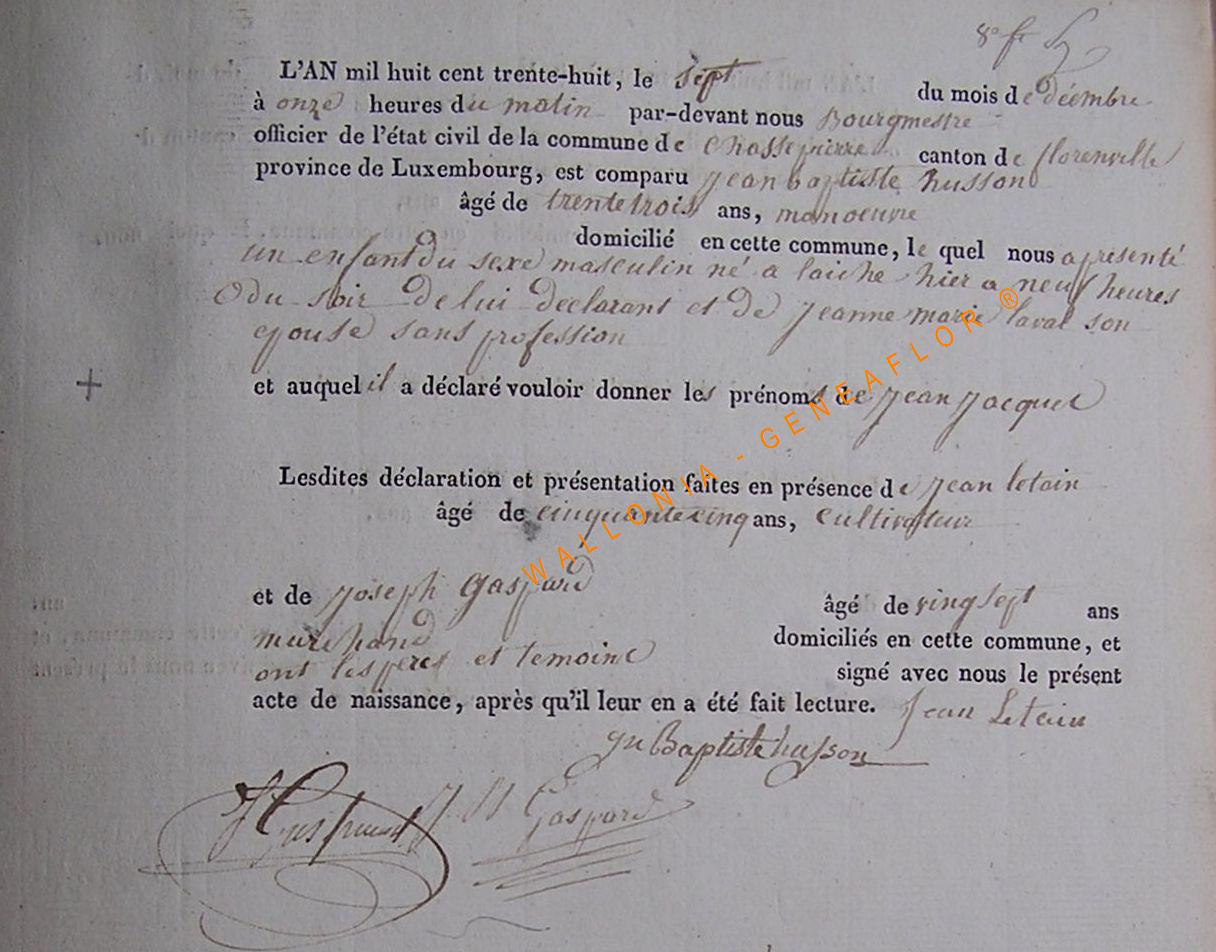 L'AN mil huit cent trente-huit, le sept du mois de décembre
à onze heures du matin par-devant nous Bourgmestre
officier de l'état civil de la commune de Chassepierre canton de florenville
province de Luxembourg, est comparu jean baptiste husson
âgé de trente trois ans, manoeuvre
domicilié en cette commune, le quel nous a présenté
un enfant du sexe masculin né a laiche hier a neuf heures
du soir de lui declarant et de jeanne marie laval son
epouse sans profession
et auquel il a déclaré vouloir donner les prénoms de jean jacques
Lesdites déclaration et présentation faites en présence de jean letain
âgé de cinquante cinq ans, cultivateur
et de joseph gaspard âgé de vingt sept ans
marchand domiciliés en cette commune, et
ont les peres et temoins signé avec nous le présent
acte de naissance, après qu'il leur en a été fait lecture. Jean Letain
jn Baptiste husson
Gaspard
WALLONIA - GENEAFLOR ®